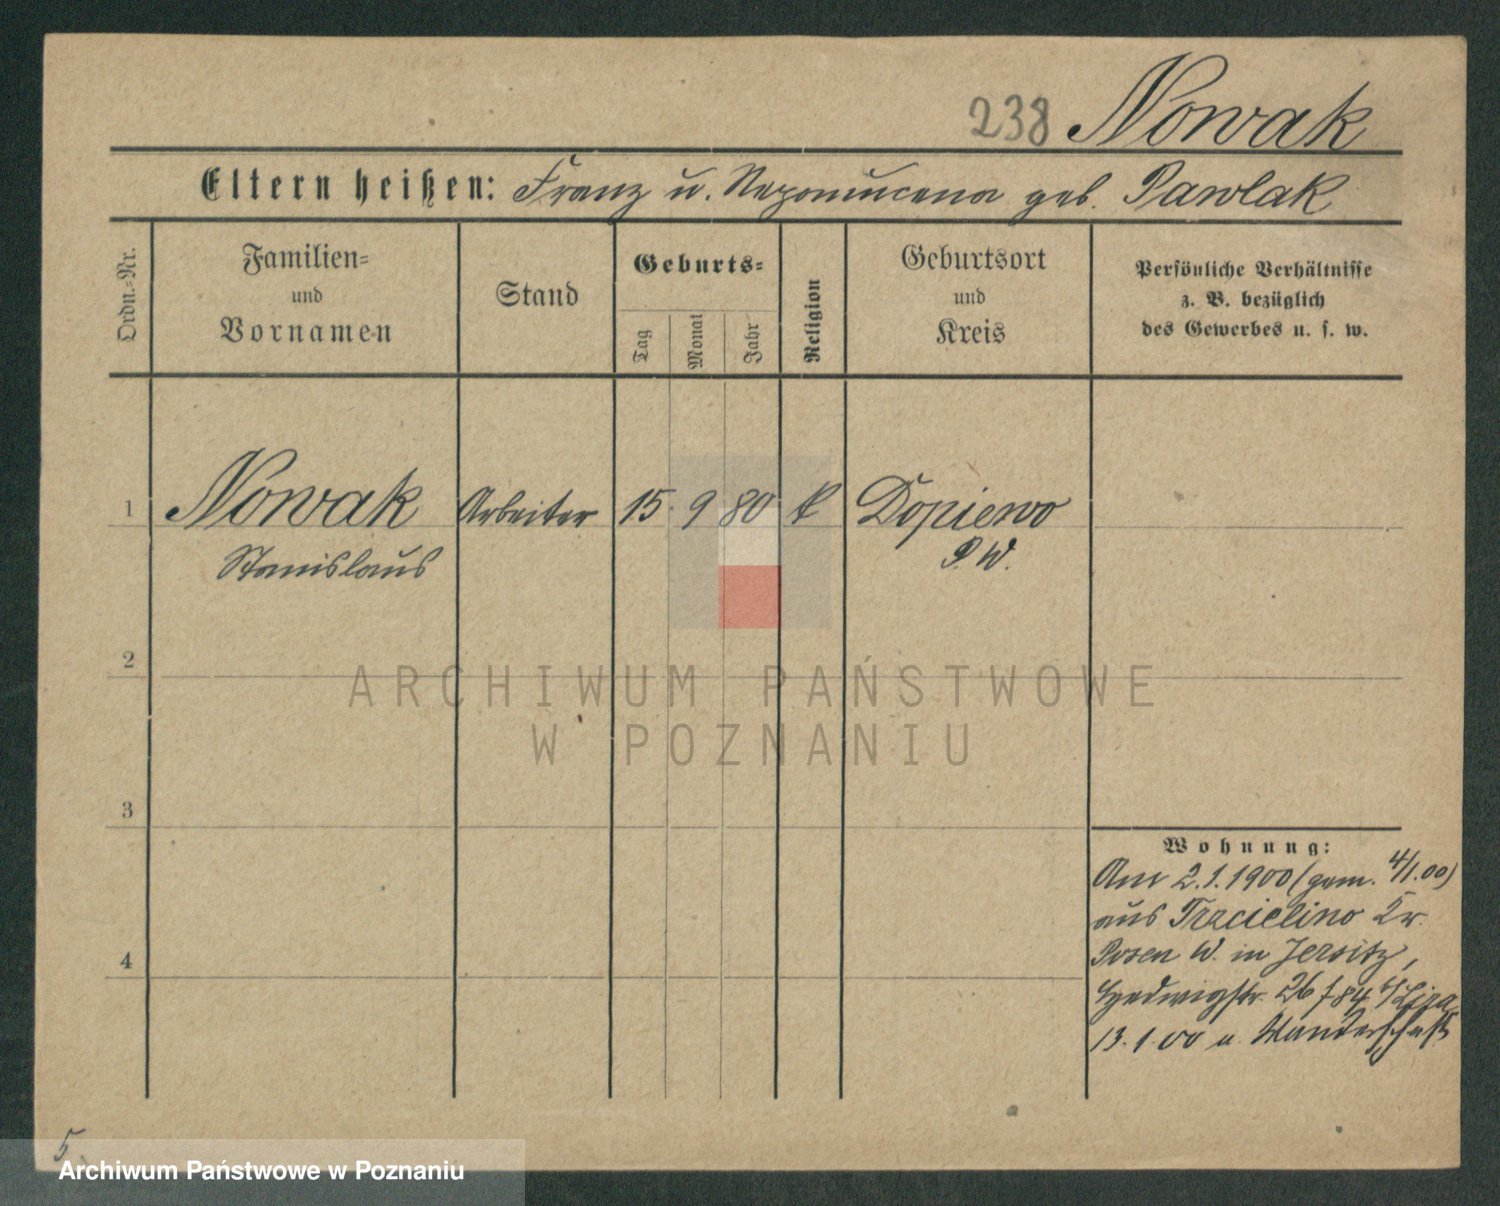 238 Nowak
Eltern heißen: Franz u. Nepomucena geb. Pawlak
Ordn.-Nr.
Familien-
und
Vornamen
Stand
Geburts-
Tag
Monat
Jahr
Religion
Geburtsort
und
Kreis
Persönliche Verhältnisse
z. B. bezüglich
des Gewerbes u. s. w.
1 Nowak Arbeiter 15. 9 80 k Dopiewo
Stanislaus P. W.
2
3
4
ARCHIWUM PAŃSTWOWE
W POZNANIU
Wohnung:
Am 2.1.1900 (gem. 4/1.00)
aus Trzcielino Kr.
Posen W. in Jersitz,
Hedwigstr. 26 /
13.1.00 a. Wanderschaft
5
Archiwum Państwowe w Poznaniu